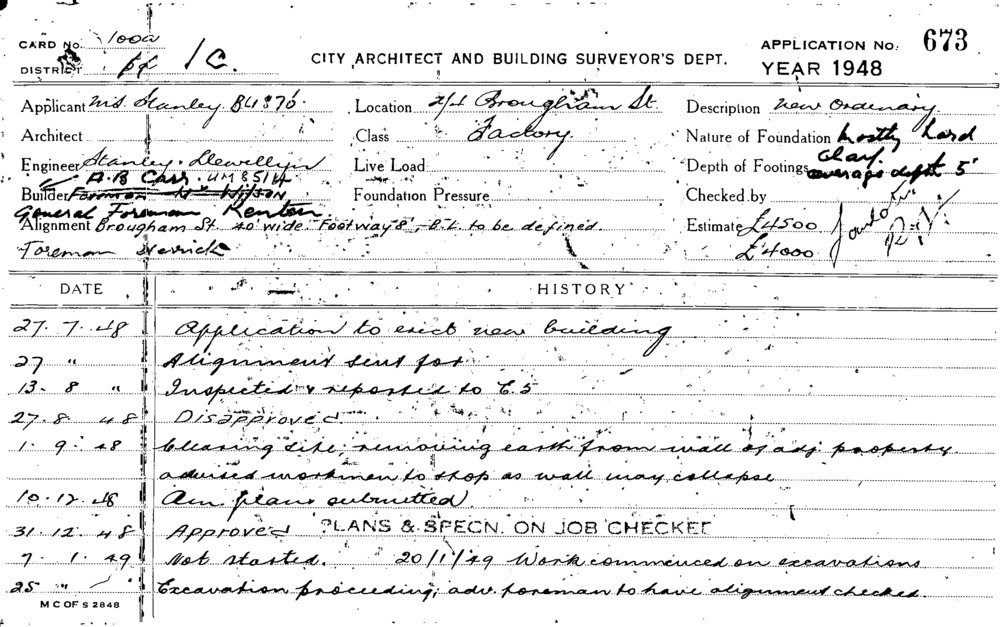 CARD No. 100a
DISTRICT 1C.
CITY ARCHITECT AND BUILDING SURVEYOR'S DEPT.
APPLICATION No. 673
YEAR 1948
Applicant Stanley B4376. Location Brougham St Description New Ordinary
Architect Class Factory Nature of Foundation Mostly hard
clay.
Engineer Stanley. Llewellyn Live Load Depth of Footings average depth 5'
A.B Carr. UM8514
Builder Foundation Pressure Checked by
General Foreman Kenton
Alignment Brougham St 40' wide. Footway 8', B.L. to be defined. Estimate £4500
Foreman Herrick £4000
DATE HISTORY
27. 7. 48 Application to erect new building
27 " Alignment sent for
13. 8 " Inspected & reported to C.S
27. 8. 48 Disapproved
1. 9. 48 Clearing site, removing earth from wall of adj property
advised workmen to stop as wall may collapse
10. 12. 48 Am. plans submitted
31. 12. 48 Approved PLANS & SPECN. ON JOB CHECKED
7. 1. 49 Not started. 20/1/49 Work commenced on excavations
25 " Excavation proceeding; adv. foreman to have alignment checked.
M C OF S 2848